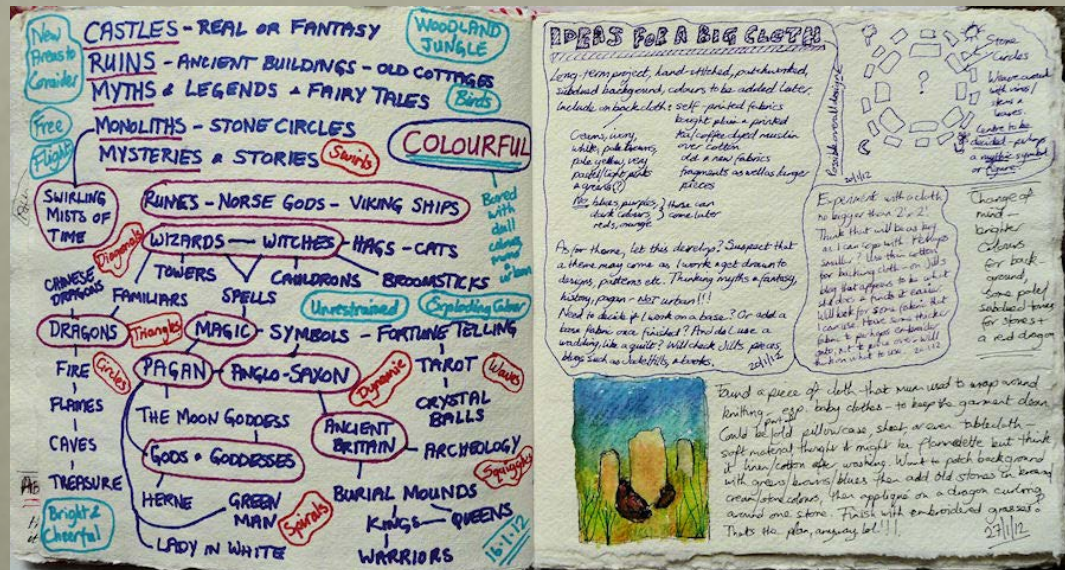 New
Areas to
Consider
CASTLES - REAL OR FANTASY
WOODLAND
JUNGLE
RUINS - ANCIENT BUILDINGS - OLD COTTAGES
MYTHS & LEGENDS & FAIRY TALES
Birds
Free
Flight
MONOLITHS - STONE CIRCLES
COLOURFUL
MYSTERIES & STORIES
Swirls
SWIRLING
MISTS OF
TIME
RUNES - NORSE GODS - VIKING SHIPS
Bored
with
dull
Diagonals
WIZARDS WITCHES - HAGS - CATS
CHINESE
DRAGONS
TOWERS
CAULDRONS
BROOMSTICKS
FAMILIARS
SPELLS
Unrestrained
Exploding Colour
DRAGONS
Triangles
MAGIC - SYMBOLS - FORTUNE TELLING
FIRE
Circles
PAGAN - ANGLO-SAXON
Dynamic
TAROT
Waves
FLAMES
THE MOON GODDESS
CRYSTAL
BALLS
CAVES
GODS + GODDESSES
ANCIENT
BRITAIN
ARCHEOLOGY
Squiggles
TREASURE
HERNE
GREEN
MAN
Spirals
BURIAL MOUNDS
KINGS QUEENS
WARRIORS
Bright &
Cheerful
LADY IN WHITE
16.1.12
IDEAS FOR A BIG CLOTH
Long-term project, hand-stitched, patchworked,
subdued background, colours to be added later.
Include on backcloth: self-printed fabrics
bought plain & printed
tea/coffee dyed muslin
over cotton
old & new fabrics
fragments as well as larger
pieces
Creams, ivory,
white, pale browns,
pale yellow, very
pastel/light pinks
& greens(?)
No blues, purples,
dark colours,
reds, orange
these can
come later
As for theme, let this develop? Suspect that
a theme may come as I work & get drawn to
designs, patterns etc. Thinking myths & fantasy,
history, pagan - NOT urban!!!
Need to decide if I work on a base? Or add a
base fabric once finished? And do I use a
wadding, like a quilt? Will check Jill's pieces,
blogs such as Jude Hill's, & books.
20/1/12
Possible overall design
?
Stone
Circles
Weave around
with vines/
stems &
leaves.
Centre to be
decided - perhaps
a mythic symbol
or figure
20/1/12
Experiment with a cloth
no bigger than 2' x 2'.
Think that will be as big
as I can cope with. Perhaps
smaller? Use thin cotton
for backing cloth - on Jill's
blog that appears to be what
she does & finds it easier.
Will look for some fabric that
I can use. Have some thicker
fabric to perhaps embroider
onto, but to
what to use. 20/1/12
Change of
mind -
brighter
colours
for back-
ground,
some pale/
subdued tones
for stones +
a red dragon
Found a piece of cloth that mum used to wrap around
knitting - esp. baby clothes - to keep the garment clean.
Could be old pillowcase, sheet or even tablecloth -
soft material, thought it might be flannelette but think
it linen/cotton after washing. Want to patch background
with greens/browns/blues then add old stones in brown/
cream/stone colours, then applique on a dragon curling
around one stone. Finish with embroidered grasses?
That's the plan, anyway, lol!!!
27/1/12